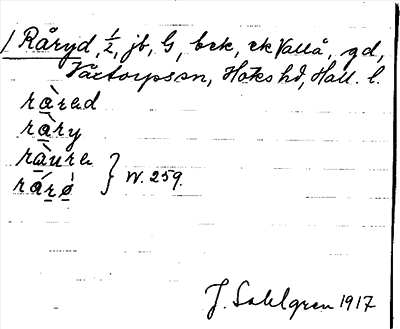 Råryd, ½, jb, G, bek, ek Vallå, gd,
Våxtorps sn, Höks hd, Hall. l.
rà̱rad
rà̱ry
rà̱ura
rá̱rø̱̀ } W. 259.
J. Sahlgren 1917